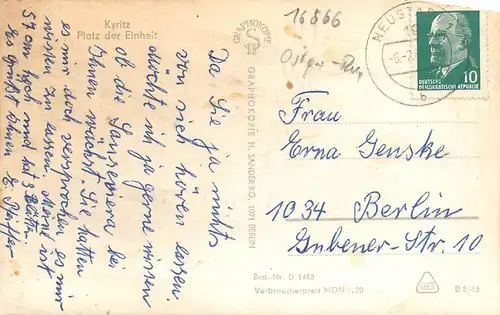 Kyritz
Platz der Einheit
Da Sie ja nichts
von sich hören lassen.
Möchte ich ja gerne wissen
ob die Sansevieria bei
Ihnen wächst. Sie hatten
es mir doch versprochen es mir
wissen zu lassen. Meine ist
57 cm hoch und hat 3 Blätter.
Es grüßt Ihnen E. Pfeiffer
GRAPHOKOPIE
GRAPHOKOPIE H. SANDER KG, 1071 BERLIN
16866
NEUSTADT
DEUTSCHE
DEMOKRATISCHE REPUBLIK
10
b
Frau
Erna Genske
1034 Berlin
Gubener-Str. 10
Best.-Nr. D 1463
Verbraucherpreis MDN -,20
B 8/65